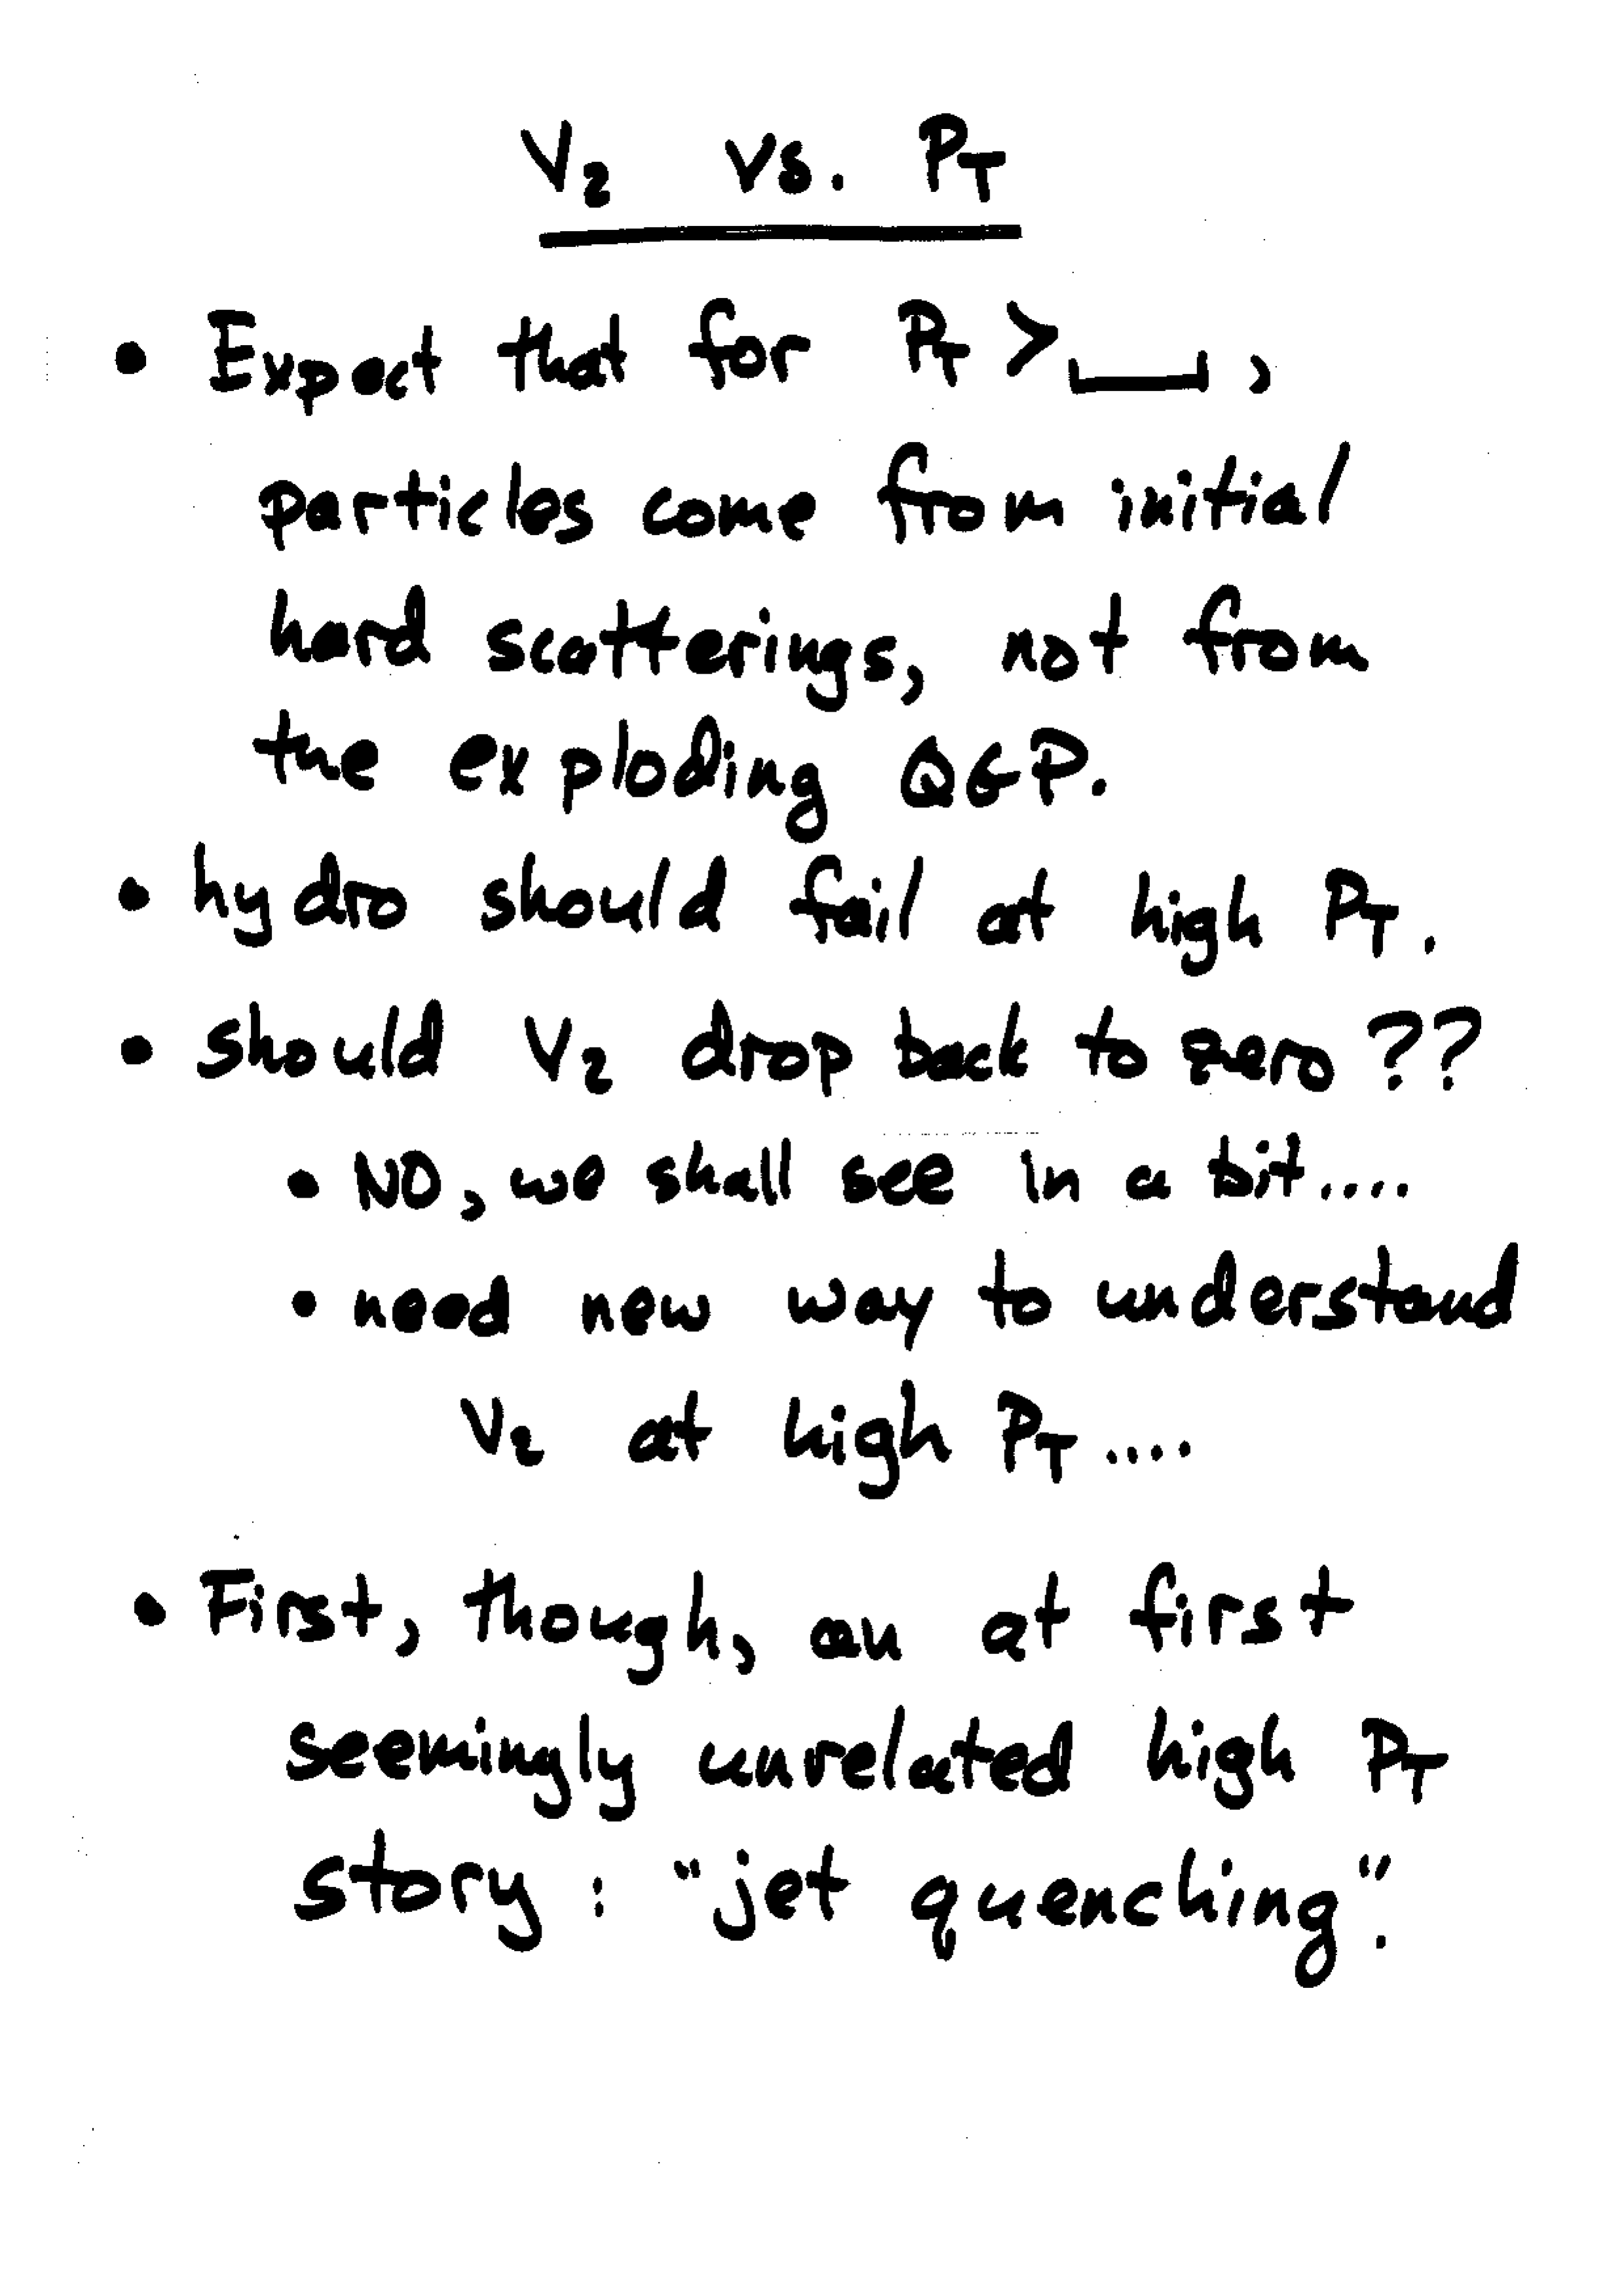 V₂ vs. P_T
• Expect that for P_T > ⎵,
particles come from initial
hard scatterings, not from
the exploding QGP.
• hydro should fail at high P_T.
• should V₂ drop back to zero??
• NO, we shall see in a bit....
• need new way to understand
V₂ at high P_T....
• First, though, an at first
seemingly unrelated high P_T
story: "jet quenching".